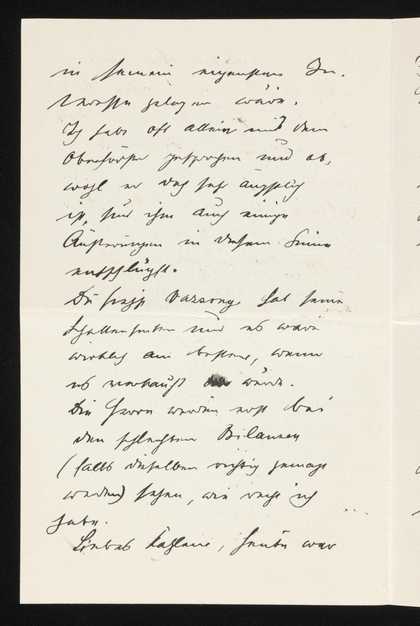 in seinem eigensten In-
teresse gelegen wäre.
Ich habe oft allein mit dem
Oberförster gesprochen und ob-
wohl er doch sehr ängstlich
ist, sind ihm auch einige
Äußerungen in diesem Sinne
entschlüpft.
Die hat seine
Schattenseiten und es wäre
wirklich am besten, wenn
es verkauft würde.
Die Herren werden erst bei
den schlechten Bilanzen
(falls dieselben richtig gemacht
werden) sehen, wie recht ich
habe.
Liebes, heute war